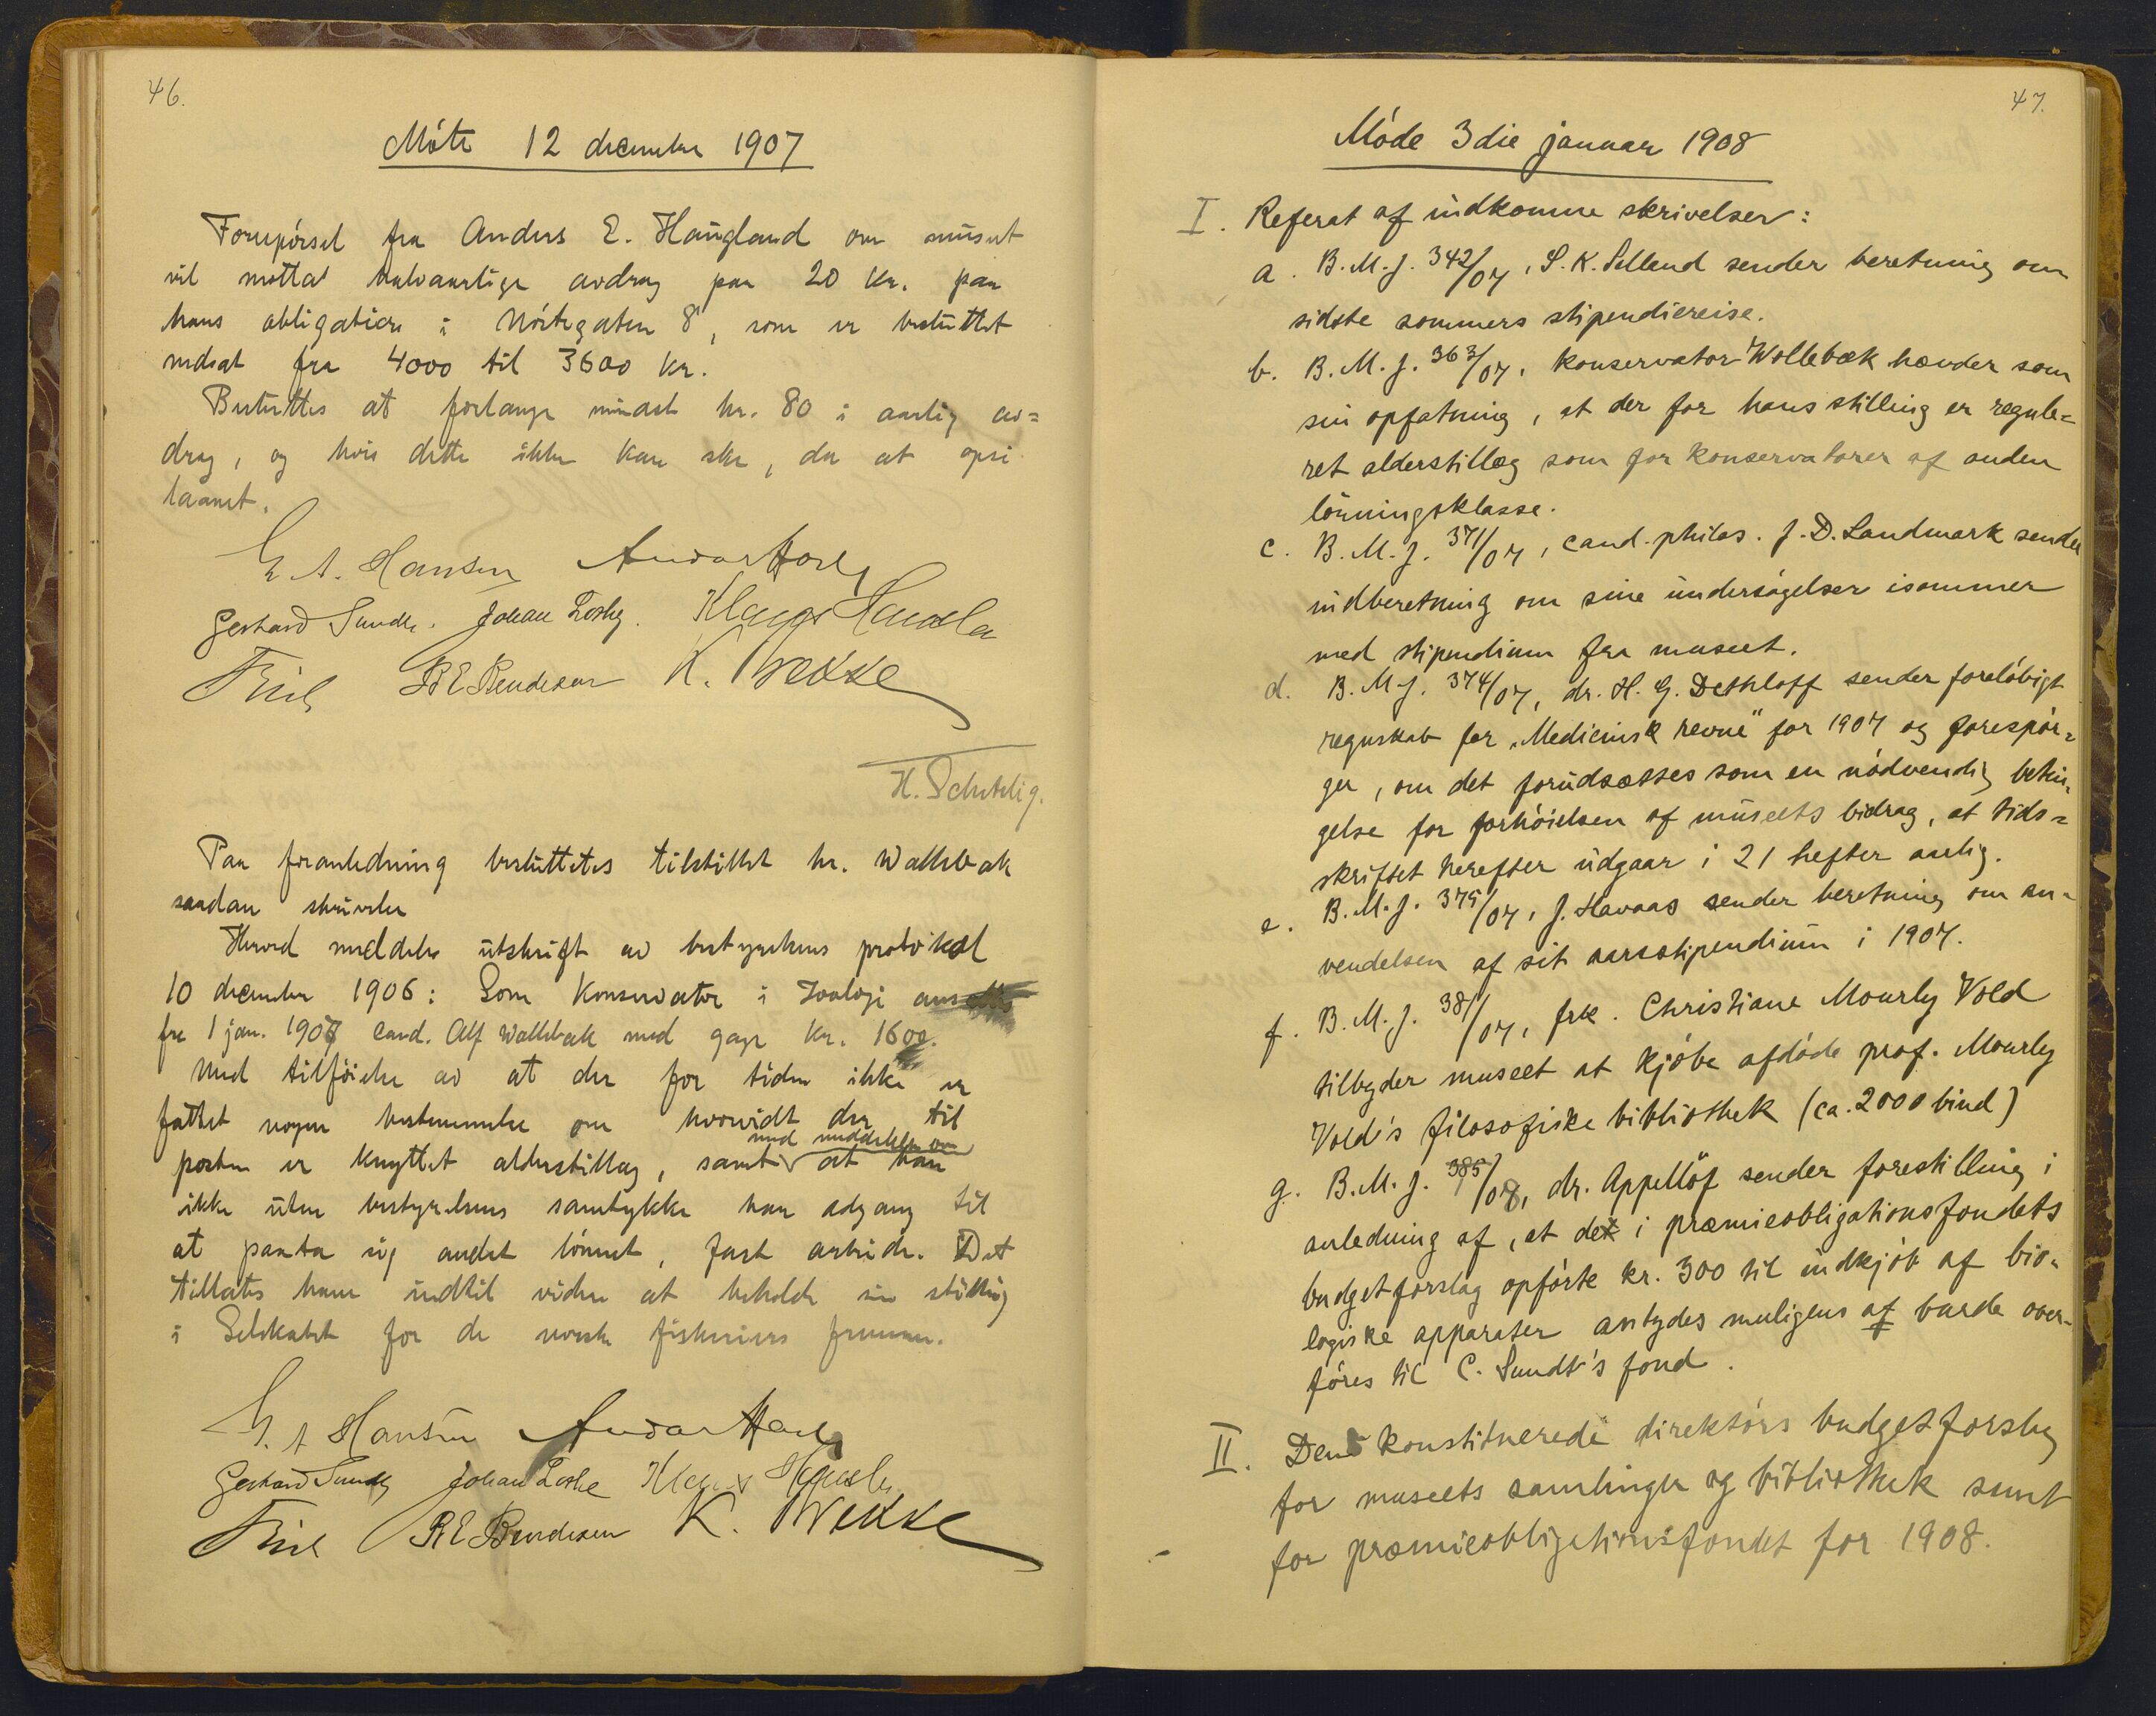 46.
Møte 12 december 1907
Forespørsel fra Anders E. Haugland om museet
vil motta halvaarlige avdrag paa 20 kr. paa
hans obligation i Nøstegaten 8, som er besluttet
nedsat fra 4000 til 3600 kr.
Besluttes at forlange mindst kr. 80 i aarlig av=
drag, og hvis dette ikke kan ske, da at opsi
laanet.
G. A. Hansen
Gerhard Sundt. Johan Losby. Klaus Hanssen
Friele B E Bendixen K. Brekke
H. Schetelig.
Paa foranledning besluttedes tilstillet hr. Wollebæk
saadan skrivelse
Herved meddeles utskrift av bestyrelsens protokol
10 december 1906: Som Konservator i zoologi ansættes
fra 1 jan. 1907 cand. Alf Wollebæk med gage kr. 1600.
Med tilføielse av at der for tiden ikke er
fattet nogen bestemmelse om hvorvidt der til
posten er knyttet alderstillæg, samt med meddelelse om at han
ikke uten bestyrelsens samtykke har adgang til
at paata sig andet lønnet, fast arbeide. Det
tillates ham indtil videre at beholde sin stilling
i Selskabet for de norske fiskeriers fremme.
G. A Hansen
Gerhard Sundt Johan Losby Klaus Hanssen
Friele B E Bendixen K. Brekke
47.
Møde 3die januar 1908
I. Referat af indkomne skrivelser:
a. B. M. J. 342/07, S. K. Selland sender beretning om
sidste sommers stipendiereise.
b. B. M. J. 363/07, konservator Wollebæk hævder som
sin opfatning, at der for hans stilling er regule=
ret alderstillæg som for konservatorer af anden
lønningsklasse.
c. B. M. J. 371/07, cand. philos. J. D. Landmark sender
indberetning om sine undersøgelser isommer
med stipendium fra museet.
d. B. M. J. 374/07, dr. H. G. Dethloff sender foreløbigt
regnskab for „Medicinsk revue" for 1907 og forespør=
ger, om det forudsættes som en nødvendig betin=
gelse for forhøielsen af museets bidrag, at tids=
skriftet herefter udgaar i 21 hefter aarlig.
e. B. M. J. 375/07, J. Havaas sender beretning om an=
vendelsen af sit aarsstipendium i 1907.
f. B. M. J. 381/07, frk. Christiane Mourly Vold
tilbyder museet at kjøbe afdøde prof. Mourly
Vold's filosofiske bibliothek (ca. 2000 bind)
g. B. M. J. 385/08, dr. Appellöf sender forestilling i
anledning af, at det i præmieobligationsfondets
budgetforslag opførte kr. 300 til indkjøb af bio=
logiske apparater antydes muligens af burde over=
føres til C. Sundt's fond.
II. Den konstituerede direktørs budgetforslag
for museets samlinger og bibliothek samt
for præmieobligationsfondet for 1908.